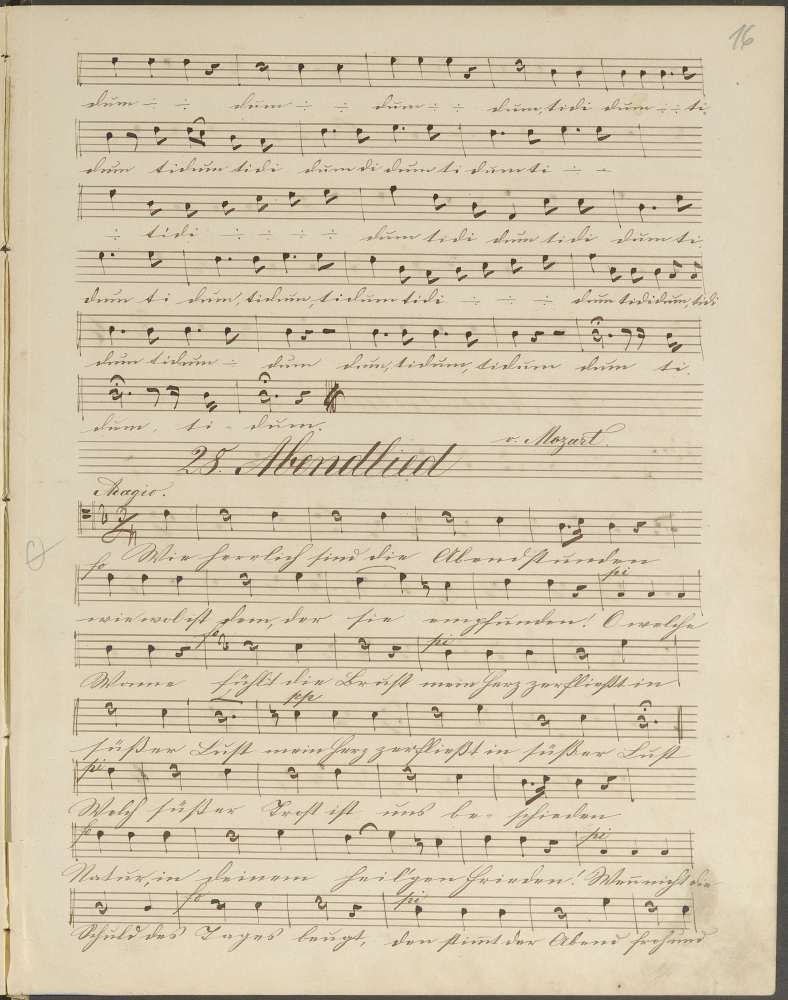 16
dum ÷ ÷ dum ÷ ÷ dum ÷ ÷ dum, tidi dum ÷ ÷ ti,
dum tidum tidi dum di dum ti dum ti ÷ ÷
÷ tidi ÷ ÷ ÷ ÷ dum tidi dum tidi dum ti,
dum ti dum, tidum, tidum tidi ÷ ÷ ÷ dum tididum, tidi
dum tidum ÷ dum dum, tidum, tidum dum ti,
dum, ti - dum.
28. Abendlied v. Mozart.
Adagio.
fo Wie herrlich sind die Abendstunden
pi
wie wol ist dem, der sie empfunden! O welche
fo pi
Wonne fühlt die Brust mein Herz zerfließt in
pp
süßer Lust mein Herz zerfließt in süßer Lust
pi
Welch süßer Trost ist uns be- schieden
fo pi
Natur, in deinem heil'gen Frieden! Wenn nicht die
fo pi
Schuld des Tages beugt, den stimt der Abend froh und